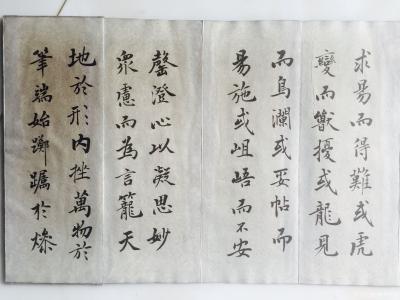 求易而得難或虎
變而獸擾或龍見
而鳥瀾或妥帖而
易施或岨峿而不安
罄澄心以凝思妙
衆慮而為言籠天
地於形内挫萬物於
筆端始躑躅於燥